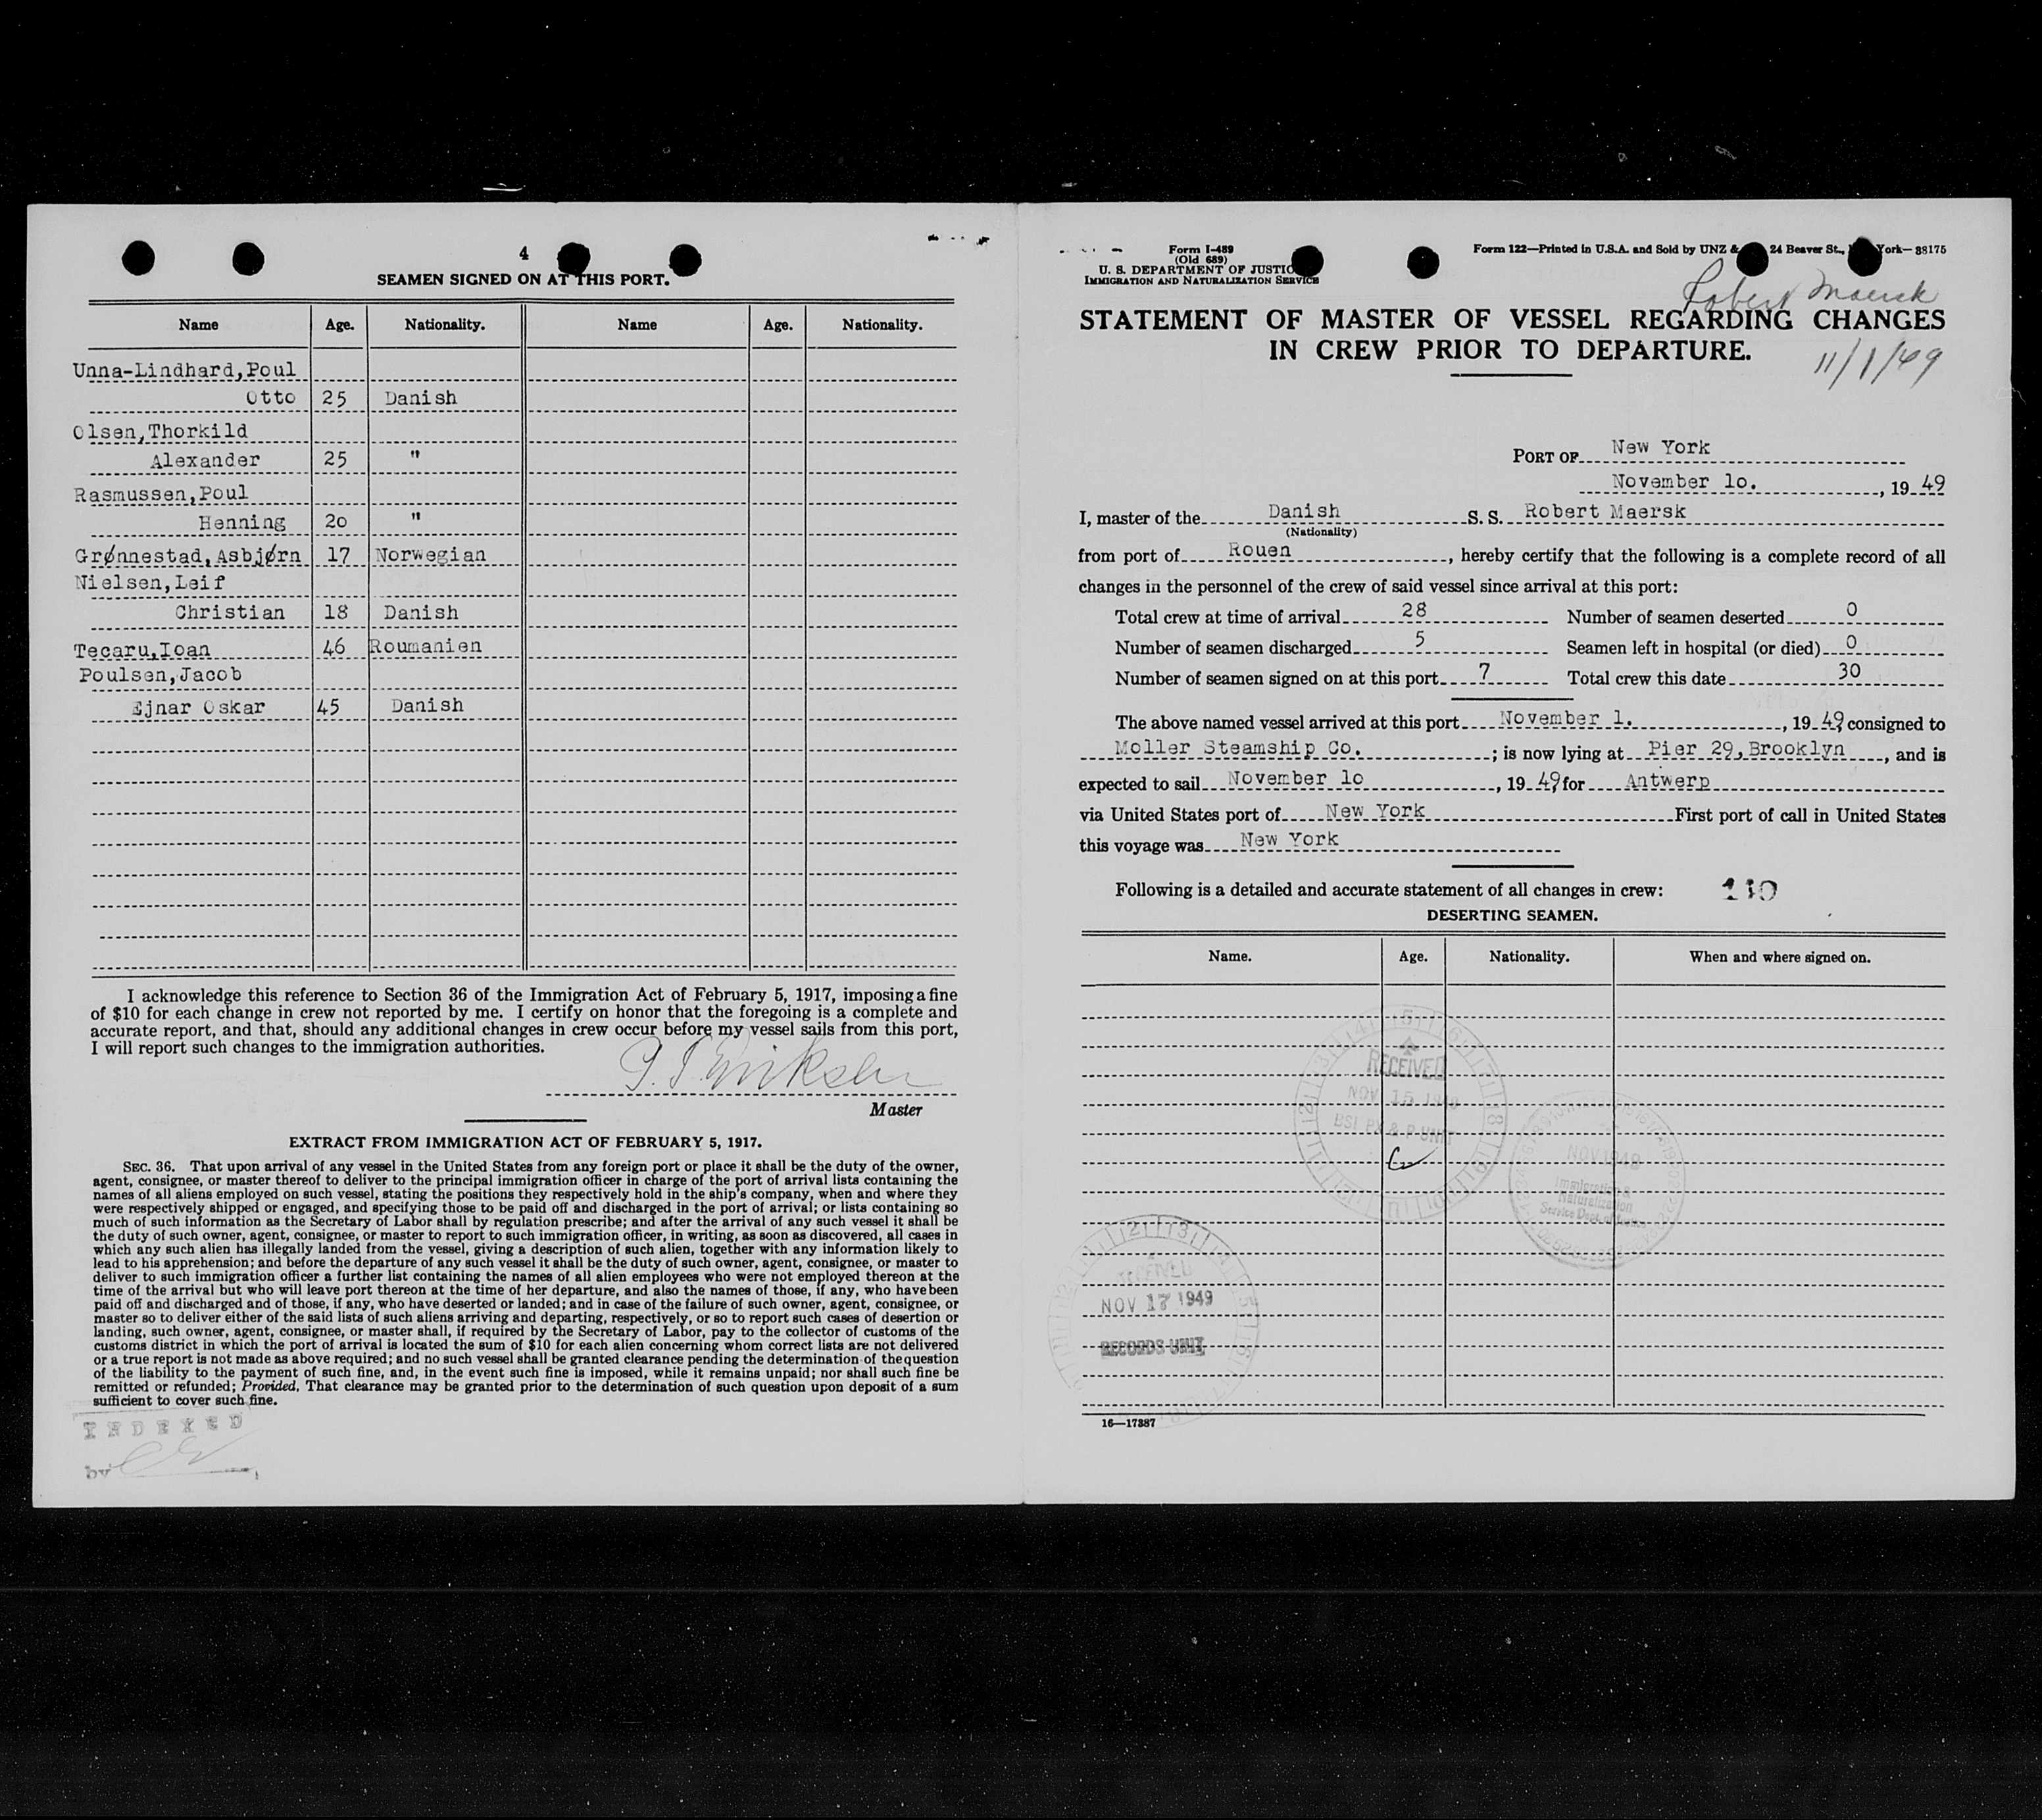 4
SEAMEN SIGNED ON AT THIS PORT.
Name Age. Nationality. Name Age. Nationality.
Unna-Lindhard,Poul
Otto 25 Danish
Olsen,Thorkild
Alexander 25 "
Rasmussen,Poul
Henning 2o "
Grønnestad,Asbjørn 17 Norwegian
Nielsen,Leif
Christian 18 Danish
Tecaru,Ioan 46 Roumanien
Poulsen,Jacob
Ejnar Oskar 45 Danish
I acknowledge this reference to Section 36 of the Immigration Act of February 5, 1917, imposing a fine
of $10 for each change in crew not reported by me. I certify on honor that the foregoing is a complete and
accurate report, and that, should any additional changes in crew occur before my vessel sails from this port,
I will report such changes to the immigration authorities.
Master
EXTRACT FROM IMMIGRATION ACT OF FEBRUARY 5, 1917.
SEC. 36. That upon arrival of any vessel in the United States from any foreign port or place it shall be the duty of the owner,
agent, consignee, or master thereof to deliver to the principal immigration officer in charge of the port of arrival lists containing the
names of all aliens employed on such vessel, stating the positions they respectively hold in the ship's company, when and where they
were respectively shipped or engaged, and specifying those to be paid off and discharged in the port of arrival; or lists containing so
much of such information as the Secretary of Labor shall by regulation prescribe; and after the arrival of any such vessel it shall be
the duty of such owner, agent, consignee, or master to report to such immigration officer, in writing, as soon as discovered, all cases in
which any such alien has illegally landed from the vessel, giving a description of such alien, together with any information likely to
lead to his apprehension; and before the departure of any such vessel it shall be the duty of such owner, agent, consignee, or master to
deliver to such immigration officer a further list containing the names of all alien employees who were not employed thereon at the
time of the arrival but who will leave port thereon at the time of her departure, and also the names of those, if any, who have been
paid off and discharged and of those, if any, who have deserted or landed; and in case of the failure of such owner, agent, consignee, or
master so to deliver either of the said lists of such aliens arriving and departing, respectively, or so to report such cases of desertion or
landing, such owner, agent, consignee, or master shall, if required by the Secretary of Labor, pay to the collector of customs of the
customs district in which the port of arrival is located the sum of $10 for each alien concerning whom correct lists are not delivered
or a true report is not made as above required; and no such vessel shall be granted clearance pending the determination of the question
of the liability to the payment of such fine, and, in the event such fine is imposed, while it remains unpaid; nor shall such fine be
remitted or refunded; Provided, That clearance may be granted prior to the determination of such question upon deposit of a sum
sufficient to cover such fine.
INDEXED
by
Form I-489
(Old 689)
U. S. DEPARTMENT OF JUSTIC
IMMIGRATION AND NATURALIZATION SERVICE
Form 122—Printed in U.S.A. and Sold by UNZ & 24 Beaver St., York—38175
Robert Maersk
STATEMENT OF MASTER OF VESSEL REGARDING CHANGES
IN CREW PRIOR TO DEPARTURE.
11/1/49
PORT OF New York
November 1o. , 19 49
I, master of the Danish S. S. Robert Maersk
(Nationality)
from port of Rouen , hereby certify that the following is a complete record of all
changes in the personnel of the crew of said vessel since arrival at this port:
Total crew at time of arrival 28 Number of seamen deserted 0
Number of seamen discharged 5 Seamen left in hospital (or died) 0
Number of seamen signed on at this port 7 Total crew this date 30
The above named vessel arrived at this port November 1. , 19 49, consigned to
Moller Steamship Co. ; is now lying at Pier 29,Brooklyn , and is
expected to sail November 1o , 19 49, for Antwerp
via United States port of New York First port of call in United States
this voyage was New York
Following is a detailed and accurate statement of all changes in crew: 110
DESERTING SEAMEN.
Name. Age. Nationality. When and where signed on.
RECEIVED
NOV 15 1949
NOV 1949
Immigration &
Naturalization
RECEIVED
NOV 17 1949
RECORDS UNIT
16—17387